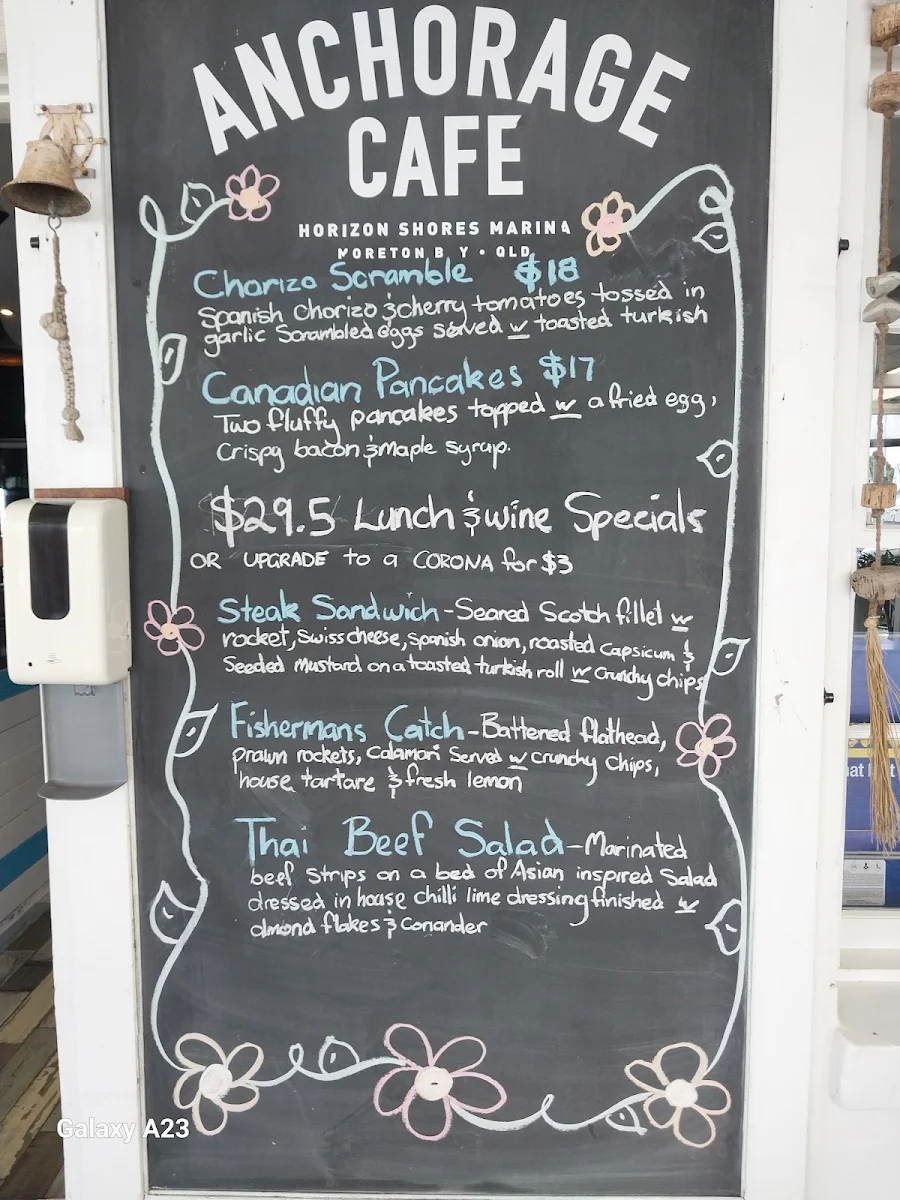 ANCHORAGE
CAFE
HORIZON SHORES MARINA
MORETON B Y • QLD
Chorizo Scramble $18
Spanish Chorizo & cherry tomatoes tossed in
garlic Scrambled eggs served w toasted turkish
Canadian Pancakes $17
Two fluffy pancakes topped w a fried egg,
Crispy bacon & maple syrup.
$29.5 Lunch & wine Specials
OR UPGRADE to a CORONA for $3
Steak Sandwich - Seared Scotch fillet w
rocket, Swiss cheese, Spanish onion, roasted capsicum &
Seeded Mustard on a toasted turkish roll w crunchy chips
Fishermans Catch - Battered flathead,
prawn rockets, Calamari Served w crunchy Chips,
house tartare & fresh lemon
Thai Beef Salad - Marinated
beef strips on a bed of Asian inspired Salad
dressed in house chilli lime dressing finished w
almond flakes & Coriander
Galaxy A23